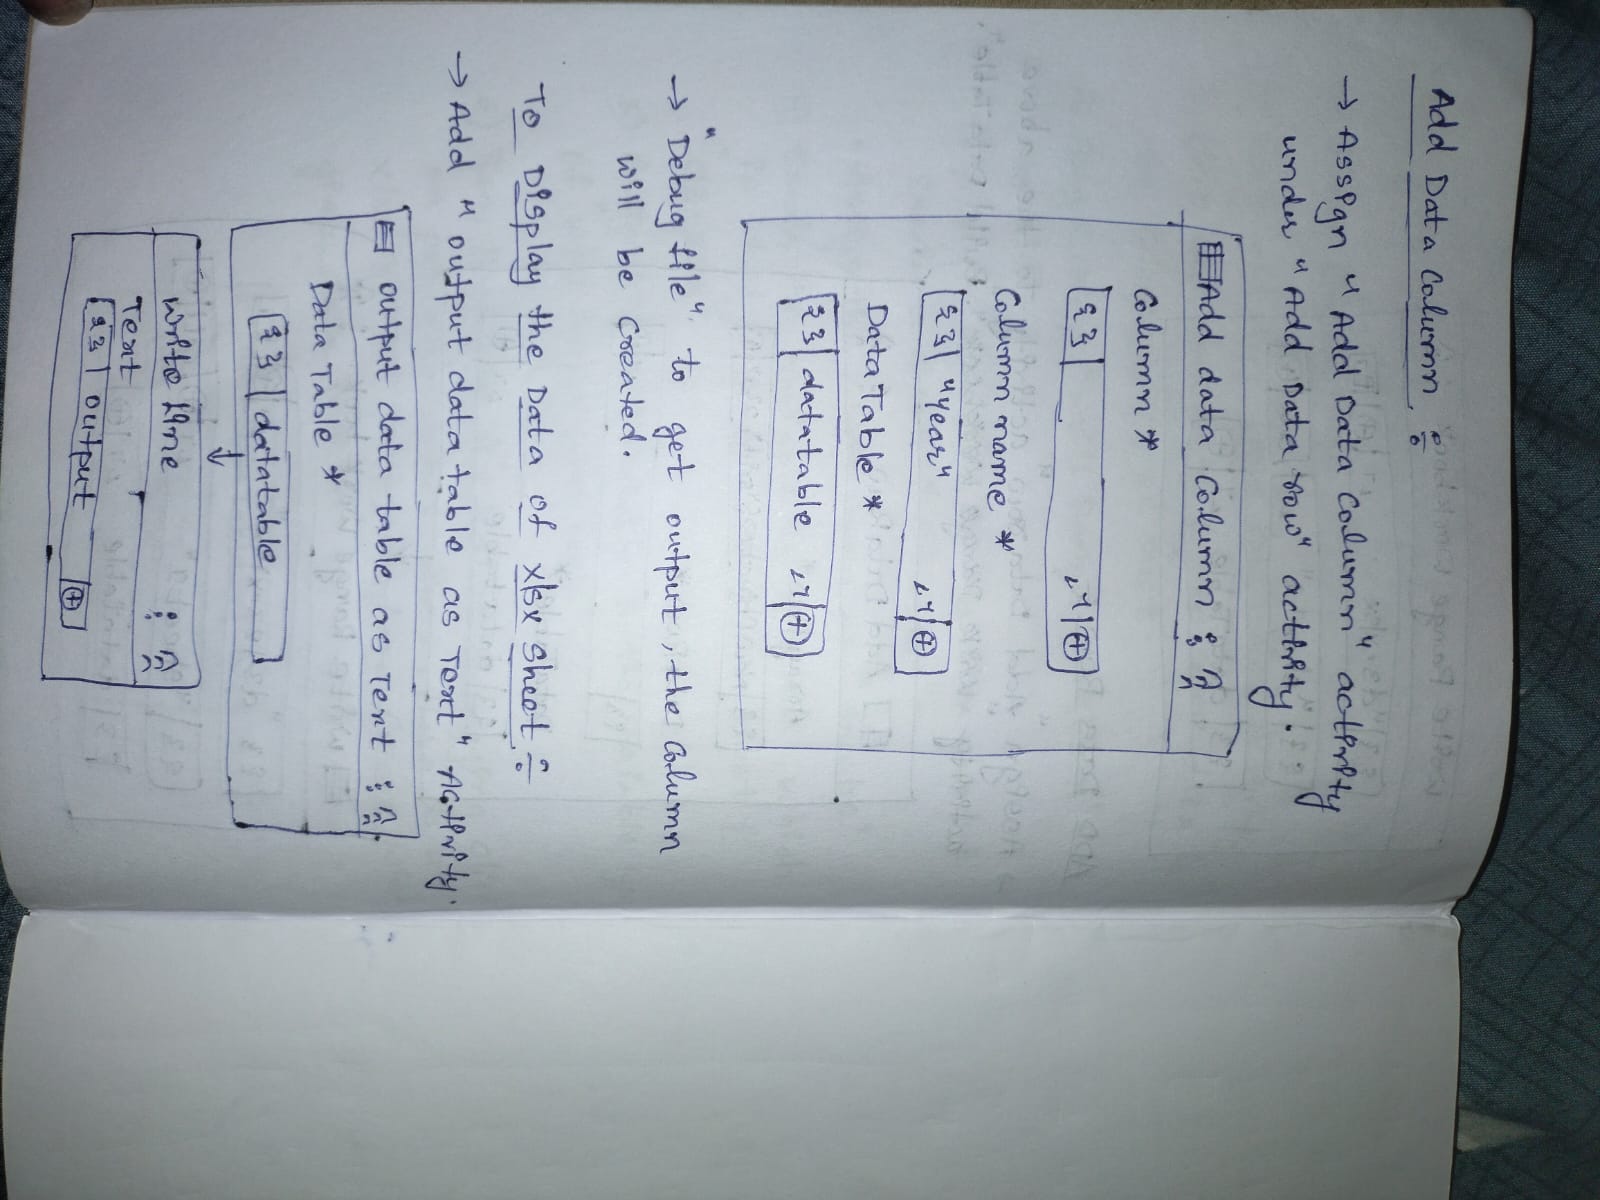 Add Data Column :-
→ Assign "Add Data Column" activity
under "Add Data row" activity.
Add data Column
Column *
{}
Column name *
{} "year"
Data Table *
{} datatable
→ "Debug file" to get output, the column
will be created.
To Display the Data of xlsx sheet :-
→ Add "output data table as Text" Activity.
output data table as Text
Data Table *
{} datatable
↓
Write line
Text
{} output